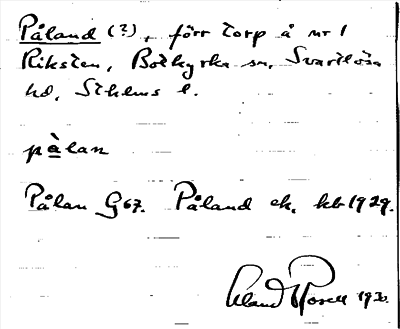 Påland (?), förr torp å nr 1
Riksten, Botkyrka sn, Svartlösa
hd, Sthlms l.
pàlan
Pålan G67. Påland ek, kb 1929.
Erland Rosell 1930.